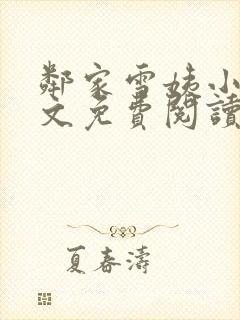 鄰家雪姨小
文免費閱讀
夏春濤